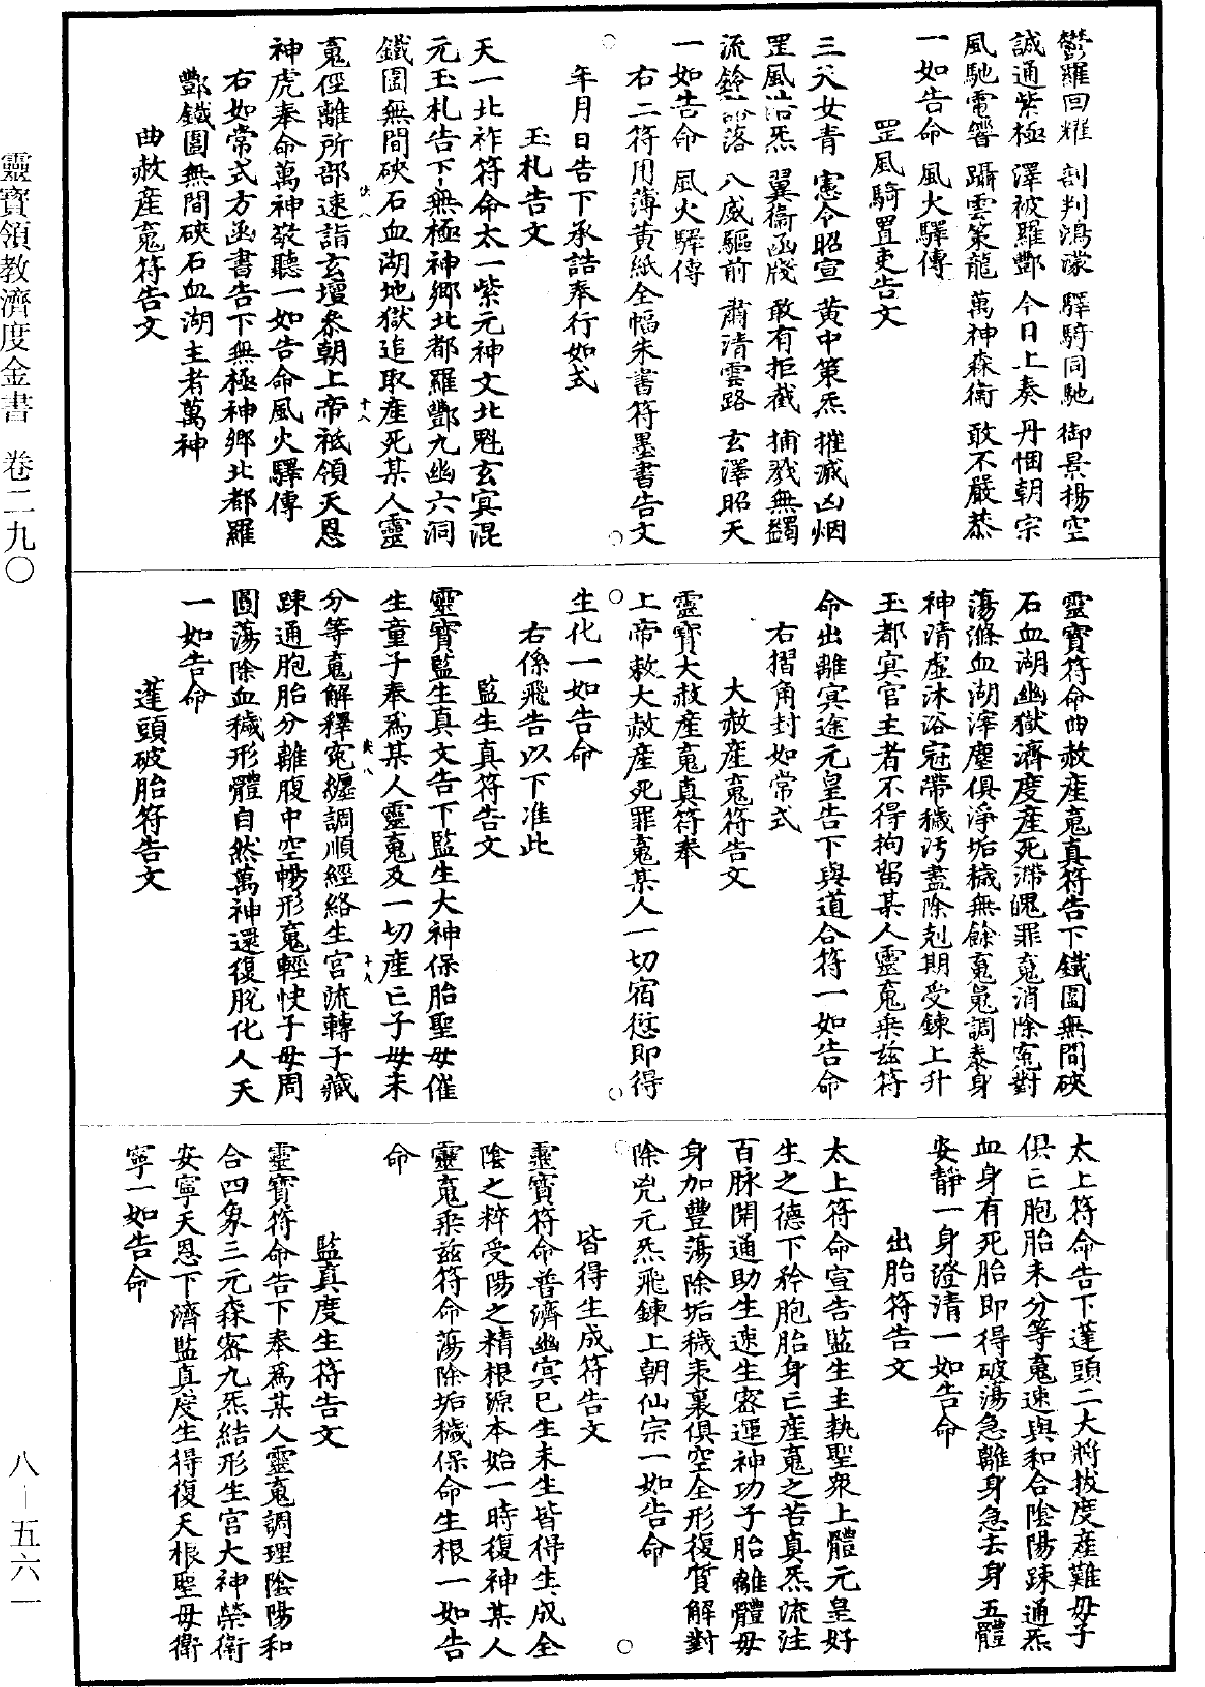 鬱羅回耀　剖判鴻濛　驛騎同馳　御景揚空
誠通紫極　澤被羅酆　今日上奏　丹悃朝宗
風馳電響　躡雲策龍　萬神森衛　敢不嚴恭
一如告命　風火驛傳
罡風騎置吏告文
三天女青　憲令昭宣　黄中策炁　摧滅凶烟
罡風浩炁　翼衛函牋　敢有拒截　捕戮無蠲
流鈴　落　八威驅前　肅清雲路　玄澤昭天
一如告命　風火驛傳
右二符用薄黄紙全幅朱書符墨書告文
年月日告下承誥奉行如式
玉札告文
天一北祚符命太一紫元神文北魁玄冥混
元玉札告下無極神鄉北都羅酆九幽六洞
鐵圍無間硤石血湖地獄追取產死某人靈
䰟徑離所部速詣玄壇叅朝上帝祇領天恩
神虎奉命萬神敬聽一如告命風火驛傳
右如常式方函書告下無極神鄉北都羅
酆鐵圍無間硤石血湖主者萬神
曲赦產䰟符告文
靈寶符命曲赦產䰟真符告下鐵圍無間硤
石血湖幽獄濟度產死滯魄罪䰟消除寃對
蕩滌血湖滓塵俱淨垢穢無餘䰟䰟調泰身
神清虛沐浴冠帶穢污盡除剋期受鍊上升
玉都冥官主者不得拘留某人靈䰟乘兹符
命出離冥途元皇告下與道合符一如告命
右摺角封如常式
大赦產䰟符告文
靈寶大赦產䰟真符奉
上帝敕大赦產死罪䰟某人一切宿愆即得
生化一如告命
右係飛告以下准此
監生真符告文
靈寶監生真文告下監生大神保胎聖母催
生童子奉爲某人靈䰟及一切產亡子母未
分等䰟解釋寃纏調順經絡生宫流轉子藏
踈通胞胎分離腹中空暢形䰟輕快子母周
圓蕩除血穢形體自然萬神還復脫化人天
一如告命
蓬頭破胎符告文
太上符命告下蓬頭二大將拔度產難母子
俱亡胞胎未分等䰟速與和合陰陽踈通炁
血身有死胎即得破蕩急離身急去身五體
安靜一身澄清一如告命
出胎符告文
太上符命宣告監生主執聖衆上體元皇好
生之德下矜胞胎身亡產䰟之苦真炁流注
百脉開通助生速生密運神功子胎離體母
身加豐蕩除垢穢表裏俱空全形復質解對
除凶元炁飛鍊上朝仙宗一如告命
皆得生成符告文
靈寶符命普濟幽冥已生未生皆得生成全
陰之粹受陽之精根源本始一時復神某人
靈䰟乘兹符命蕩除垢穢保命生根一如告
命
監真度生符告文
靈寶符命告下奉爲某人靈䰟調理陰陽和
合四象三元森密九炁結形生宫大神榮衛
安寧天恩下濟監真度生得復天根聖母衛
寧一如告命
靈寶領教濟度金書　卷二九〇
八—五六一